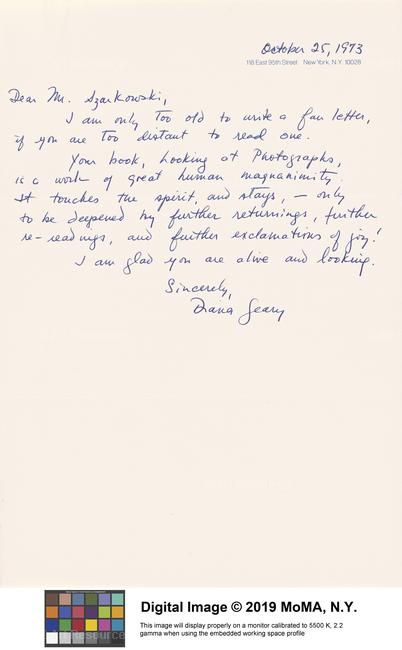 October 25, 1973
118 East 95th Street New York, N.Y. 10028
Dear Mr. Szarkowski,
I am only too old to write a fan letter,
if you are too distant to read one.
Your book, Looking at Photographs,
is a work of great human magnanimity.
It touches the spirit, and stays, — only
to be deepened by further returnings, further
re-readings, and further exclamations of joy!
I am glad you are alive and looking.
Sincerely,
Diana Geary
Digital Image © 2019 MoMA, N.Y.
This image will display properly on a monitor calibrated to 5500 K, 2.2
gamma when using the embedded working space profile